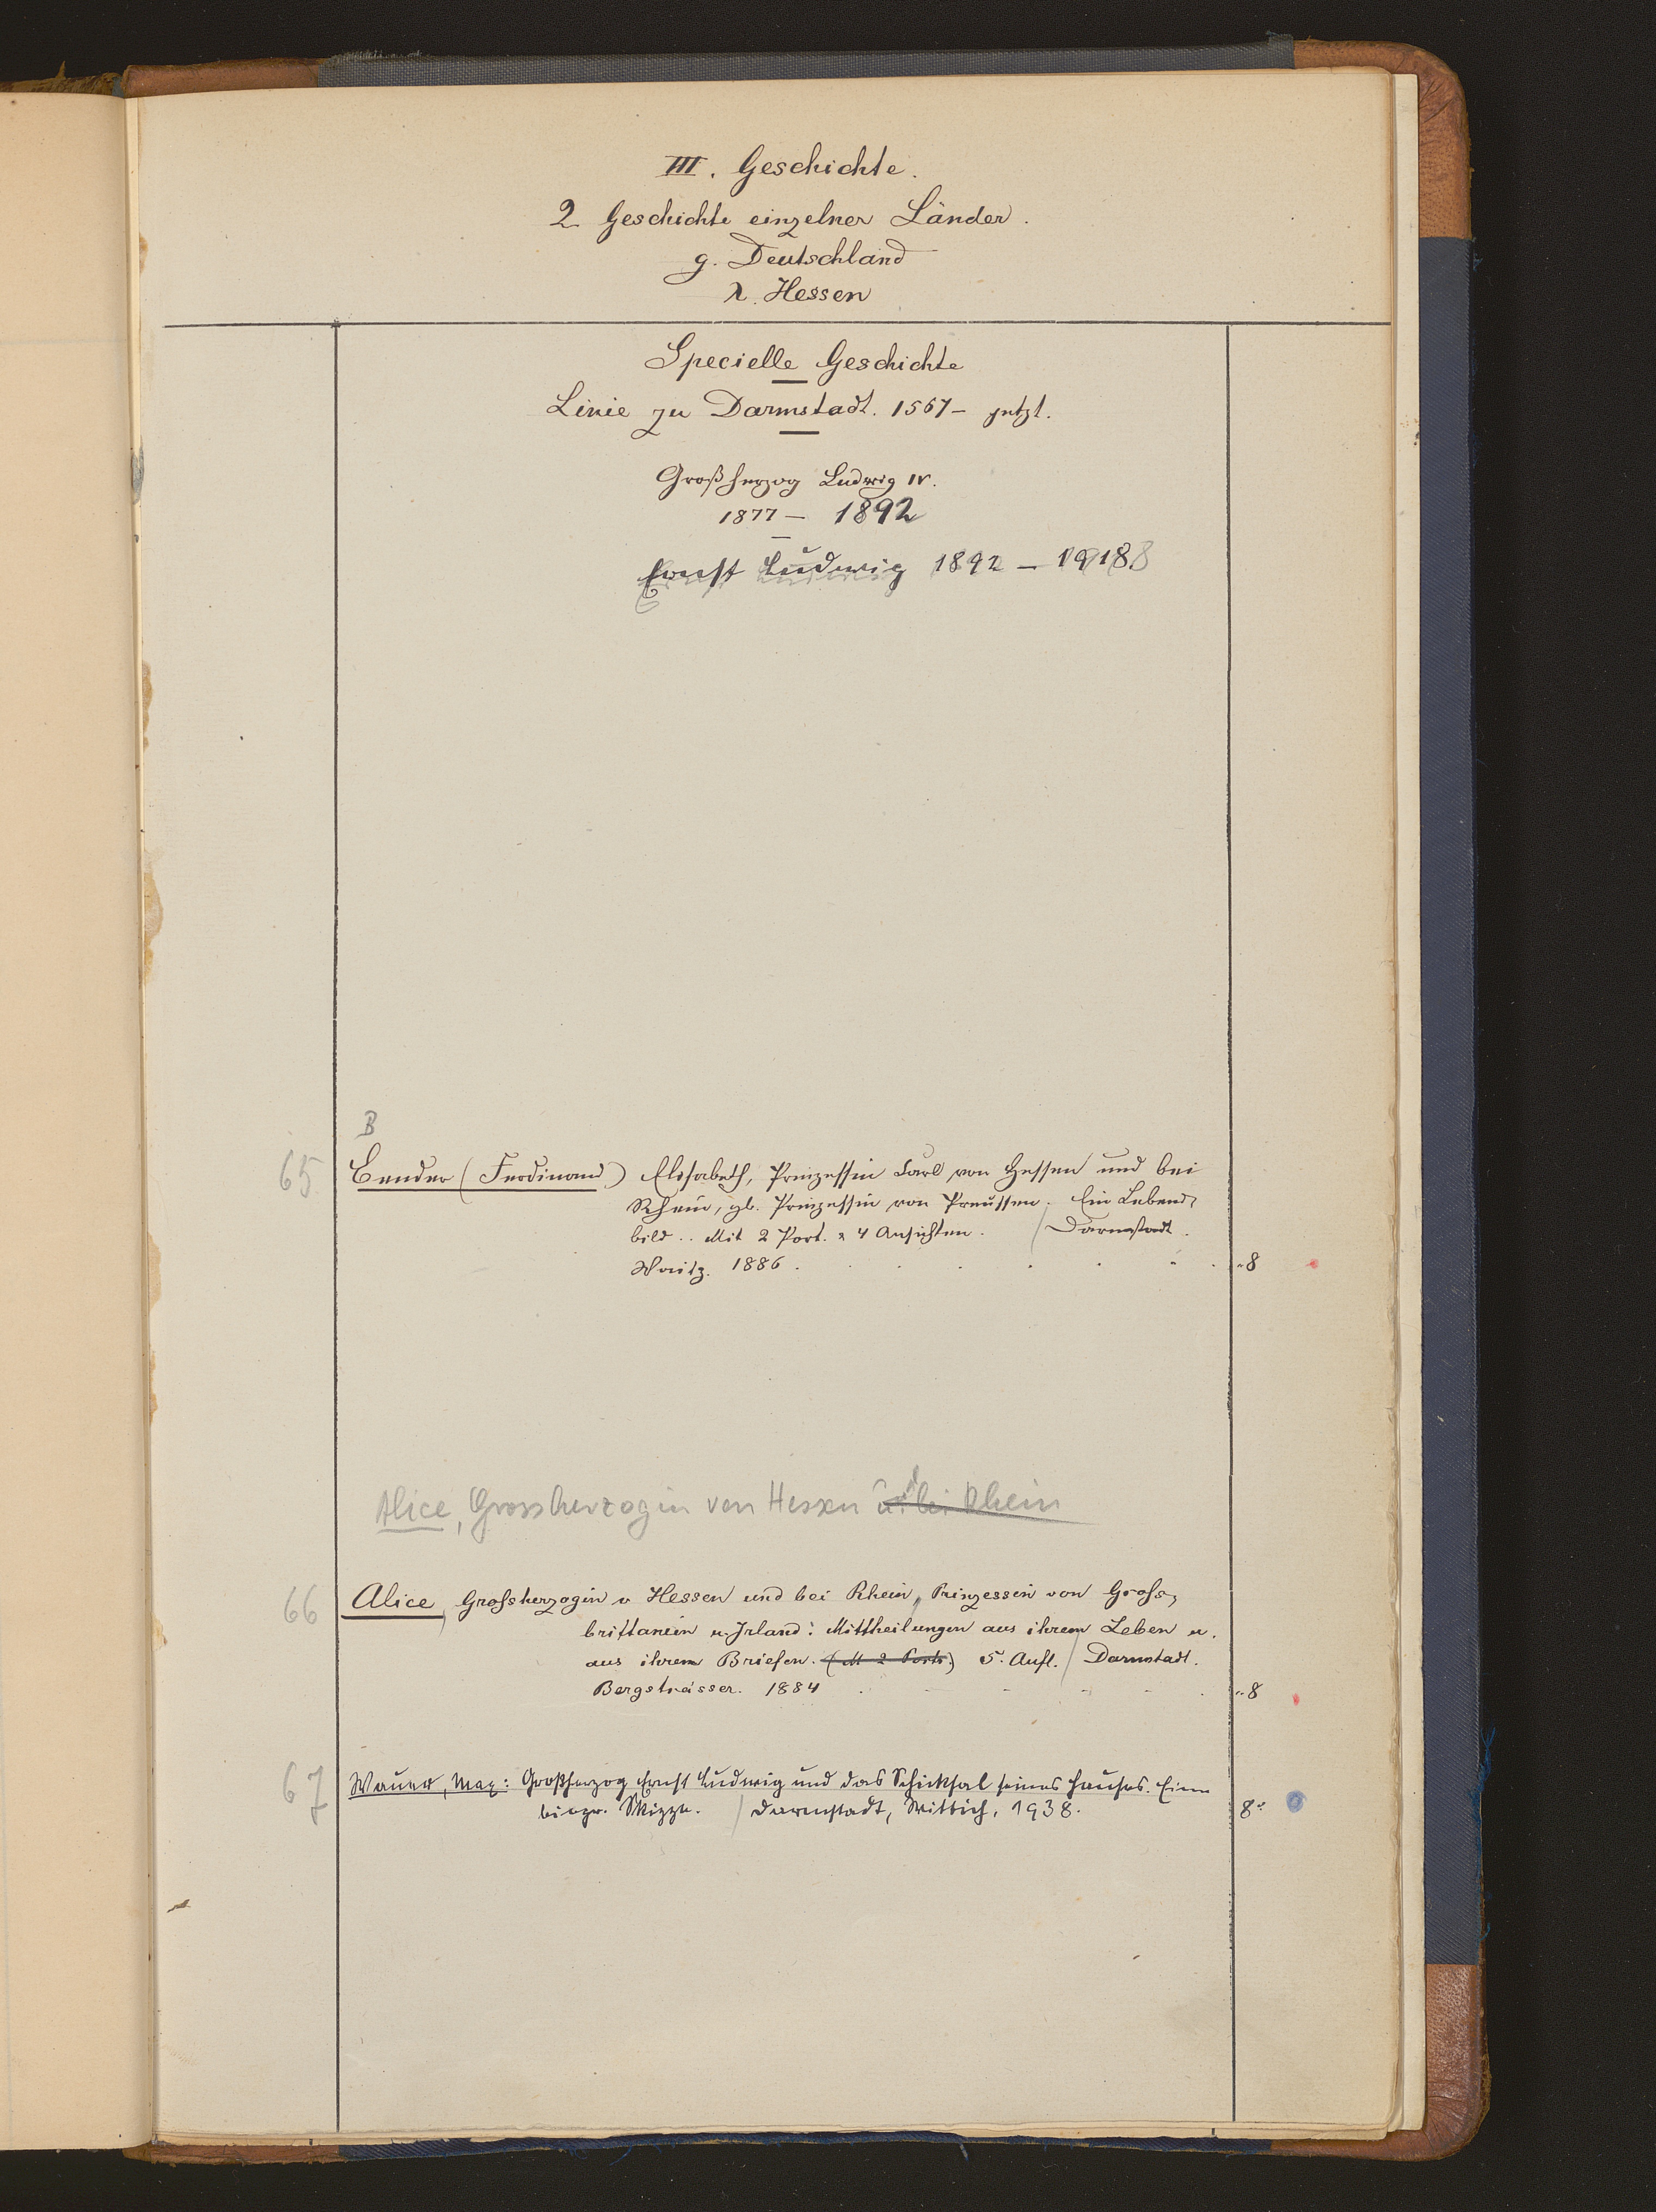 III. Geschichte.
2. Geschichte einzelner Länder.
g. Deutschland
λ. Hessen
Specielle Geschichte
Linie zu Darmstadt. 1567- jetzt.
Großherzog Ludwig IV.
1877 - 1892
Ernst Ludwig 1892 - 1918
B
65 Bender (Ferdinand) Elisabeth, Prinzessin Carl von Hessen und bei
Rhein, gb. Prinzessin von Preussen. Ein Lebens-
bild.. Mit 2 Port. & 4 Ansichten. / Darmstadt.
Waitz. 1886. 8
Alice, Grossherzogin von Hessen u. bei Rhein
66 Alice, Großherzogin v Hessen und bei Rhein, Prinzessin von Groß-
brittanien u. Irland: Mittheilungen aus ihrem Leben u.
aus ihren Briefen. (M 2 Portr.) 5. Aufl. / Darmstadt.
Bergsträsser. 1884 8
67 Wauer, Max: Großherzog Ernst Ludwig und das Schicksal seines Hauses. Eine
biogr. Skizze. / Darmstadt, Wittich, 1938. 8°